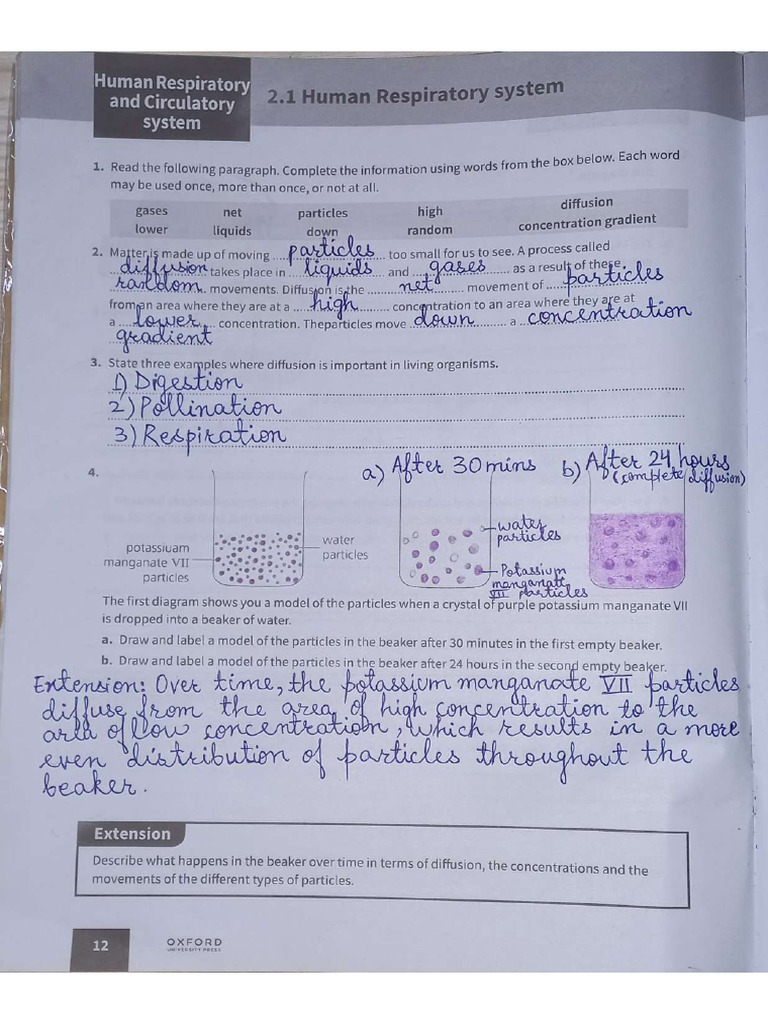 Human Respiratory
and Circulatory
system
2.1 Human Respiratory system
1. Read the following paragraph. Complete the information using words from the box below. Each word
may be used once, more than once, or not at all.
gases net particles high diffusion
lower liquids down random concentration gradient
2. Matter is made up of moving particles too small for us to see. A process called
diffusion takes place in liquids and gases as a result of these
random movements. Diffusion is the net movement of particles
from an area where they are at a high concentration to an area where they are at
a lower concentration. Theparticles move down a concentration
gradient
3. State three examples where diffusion is important in living organisms.
1) Digestion
2) Pollination
3) Respiration
4.
a) After 30 mins
b) After 24 hours
(complete diffusion)
potassiuam
manganate VII
particles
water
particles
water
particles
Potassium
manganate
VII particles
The first diagram shows you a model of the particles when a crystal of purple potassium manganate VII
is dropped into a beaker of water.
a. Draw and label a model of the particles in the beaker after 30 minutes in the first empty beaker.
b. Draw and label a model of the particles in the beaker after 24 hours in the second empty beaker.
Extension: Over time, the potassium manganate VII particles
diffuse from the area of high concentration to the
area of low concentration, which results in a more
even distribution of particles throughout the
beaker.
Extension
Describe what happens in the beaker over time in terms of diffusion, the concentrations and the
movements of the different types of particles.
12
OXFORD
UNIVERSITY PRESS